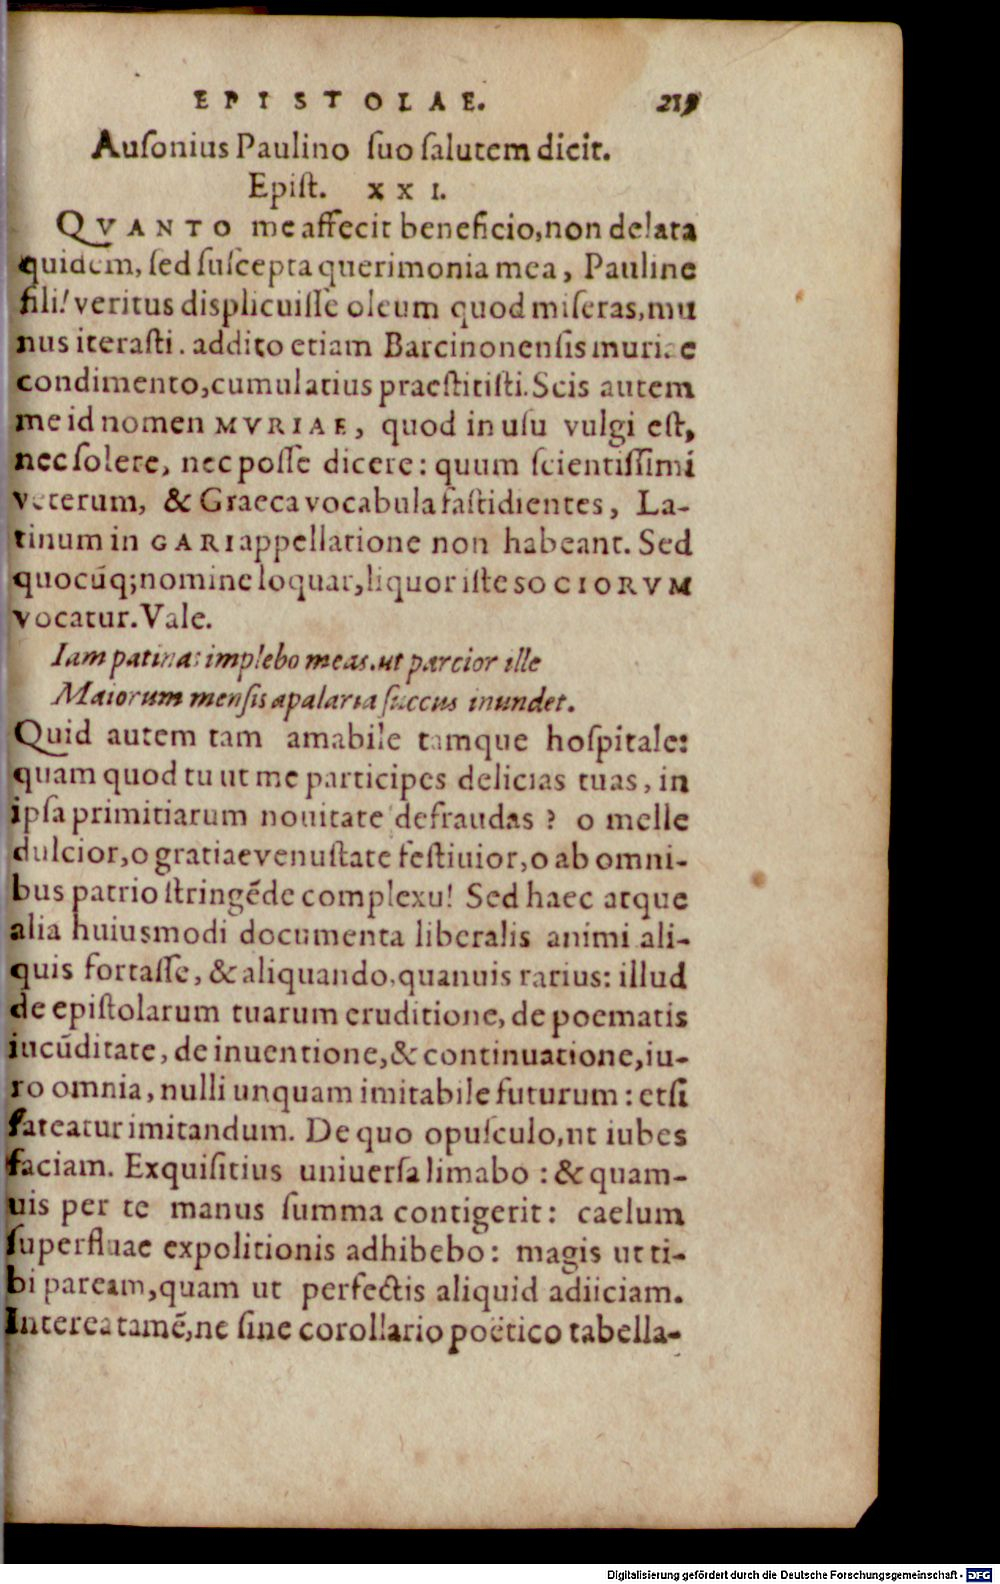 EPISTOLAE. 219
Auſonius Paulino ſuo ſalutem dicit.
Epiſt. XXI.
QVANTO me affecit beneficio, non delata
quidem, ſed ſuſcepta querimonia mea, Pauline
fili! veritus diſplicuiſſe oleum quod miſeras, mu
nus iteraſti. addito etiam Barcinonenſis muriae
condimento, cumulatius praeſtitiſti. Scis autem
me id nomen MVRIAE, quod in uſu vulgi eſt,
nec ſolere, nec poſſe dicere: quum ſcientiſſimi
veterum, & Graeca vocabula faſtidientes, La-
tinum in GARI appellatione non habeant. Sed
quocūq; nomine loquar, liquor iſte SOCIORVM
vocatur. Vale.
Iam patinas implebo meas. ut parcior ille
Maiorum menſis apalaria ſuccus inundet.
Quid autem tam amabile tamque hoſpitale:
quam quod tu ut me participes delicias tuas, in
ipſa primitiarum nouitate defraudas? o melle
dulcior, o gratiae venuſtate feſtiuior, o ab omni-
bus patrio ſtringēde complexu! Sed haec atque
alia huiusmodi documenta liberalis animi ali-
quis fortaſſe, & aliquando, quanuis rarius: illud
de epiſtolarum tuarum eruditione, de poematis
iucūditate, de inuentione, & continuatione, iu-
ro omnia, nulli unquam imitabile futurum: etſi
fateatur imitandum. De quo opuſculo, nt iubes
faciam. Exquiſitius uniuerſa limabo: & quam-
uis per te manus ſumma contigerit: caelum
ſuperfluae expolitionis adhibebo: magis ut ti-
bi paream, quam ut perfectis aliquid adiiciam.
Interea tamē, ne ſine corollario poëtico tabella-
Digitalisierung gefördert durch die Deutsche Forschungsgemeinschaft - DFG